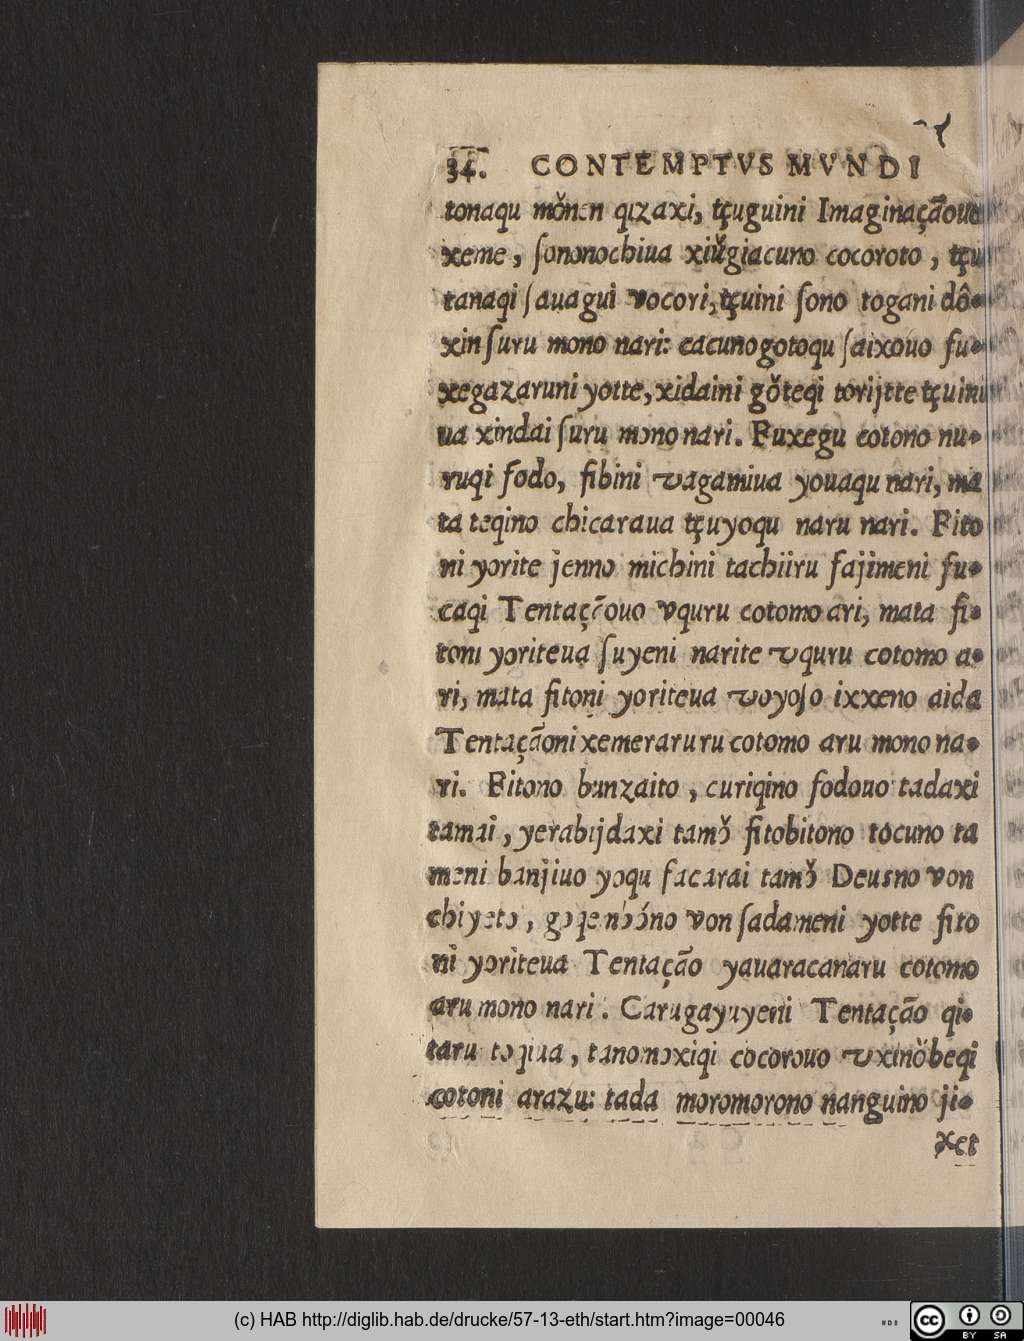 34. CONTEMPTVS MVNDI
tonaqu mǒnen qizaxi, tçuguini Imaginaçãoue
xeme, ſononochiua xiǔgiacuno cocoroto, tçu
tanaqi ſauagui vocori, tçuini ſono togani dô-
xin ſuru mono nari: cacunogotoqu ſaixouo fu-
xegazaruni yotte, xidaini gǒteqi torijtte tçuini
ua xindai ſuru mono nari. Fuxegu cotono nu-
ruqi fodo, fibini vagamiua youaqu nari, ma
ta teqino chicaraua tçuyoqu naru nari. Fito
ni yorite jenno michini tachiiru fajimeni fu-
caqi Tentaçãouo vquru cotomo ari, mata fi-
toni yoriteua ſuyeni narite vquru cotomo a-
ri, mata fitoni yoriteua voyoſo ixxeno aida
Tentaçãoni xemeraruru cotomo aru mono na-
ri. Fitono bunzaito, curiqino fodouo tadaxi
tamai, yerabijdaxi tamǒ fitobitono tocuno ta
meni banjiuo yoqu facarai tamǒ Deusno von
chiyeto, goqenbóno von ſadameni yotte fito
ni yoriteua Tentação yauaracanaru cotomo
aru mono nari. Carugayuyeni Tentação qi-
taru toqiua, tanomoxiqi cocorouo vxinǒbeqi
cotoni arazu: tada moromorono nanguino ji-
xet
(c) HAB http://diglib.hab.de/drucke/57-13-eth/start.htm?image=00046
CC BY SA